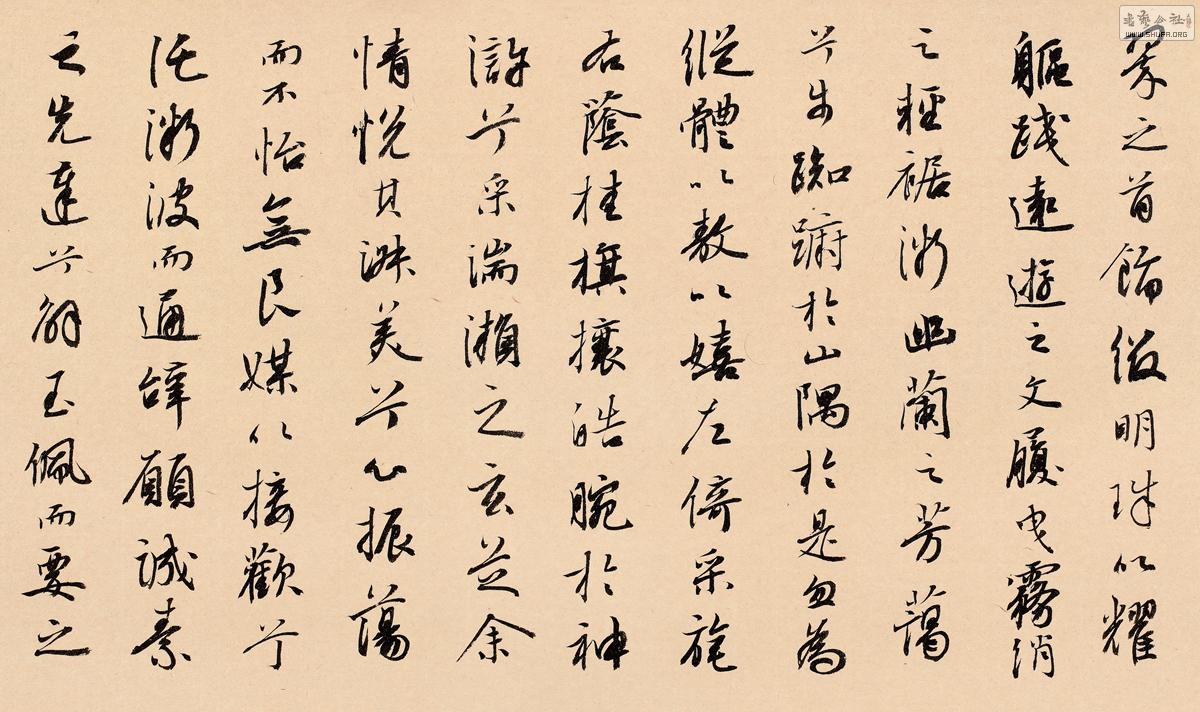 翠之首飾綴明珠以耀
軀踐遠遊之文履曳霧綃
之輕裾微幽蘭之芳藹
兮步踟躕於山隅於是忽焉
縱體以敖以嬉左倚采旄
右蔭桂旗攘皓腕於神
滸兮采湍瀨之玄芝余
情悅其淑美兮心振蕩
而不怡無良媒以接歡兮
託微波而通辭願誠素
之先達兮解玉佩而要之
書藝公社
www.SHUFA.ORG